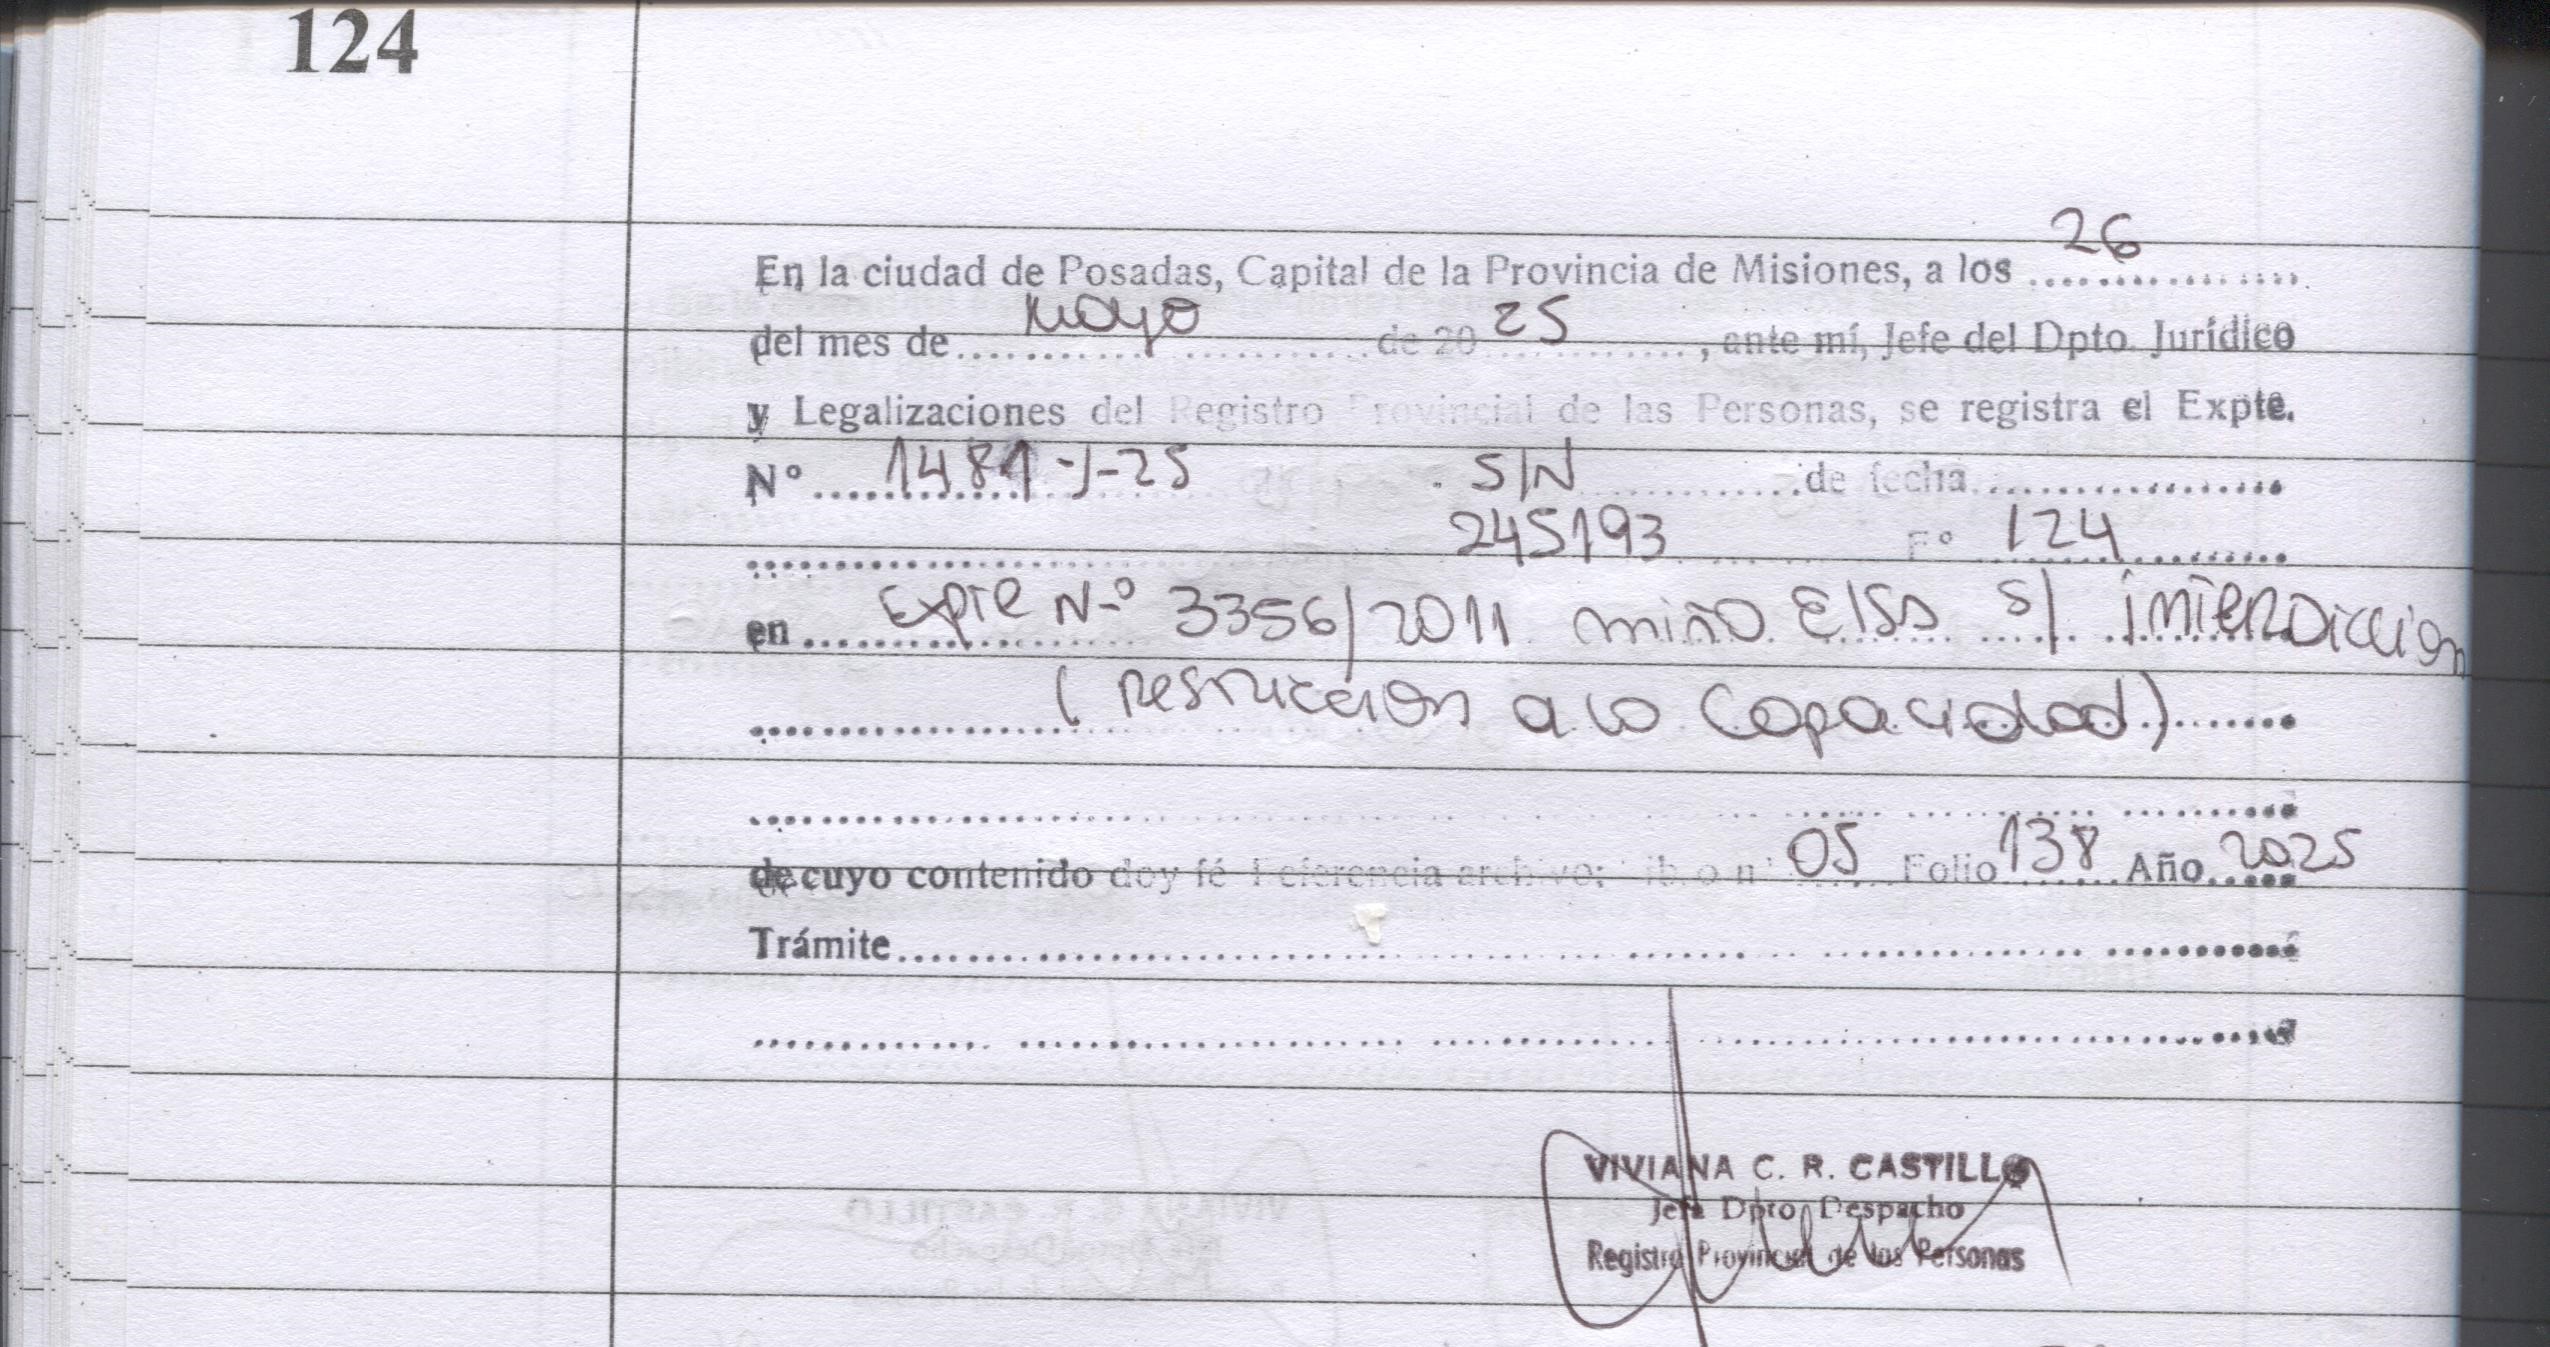 124
26
En la ciudad de Posadas, Capital de la Provincia de Misiones, a los ................
del mes de.......mayo.......de 20 25 ............, ante mí, Jefe del Dpto. Jurídico
y Legalizaciones del Registro Provincial de las Personas, se registra el Expte.
Nº ....1481-J-25 .... S/N ............de fecha..................
245193 Fº 124
en.....Expte N-º 3356/2011 miño Elsa s/ interdiccion
(restriccion a la capacidad)
de cuyo contenido doy fé Referencia archivo: libro nº 05 Folio 138 Año 2025
Trámite
VIVIANA C. R. CASTILLO
Jefa Dpto Despacho
Registro Provincial de las Personas